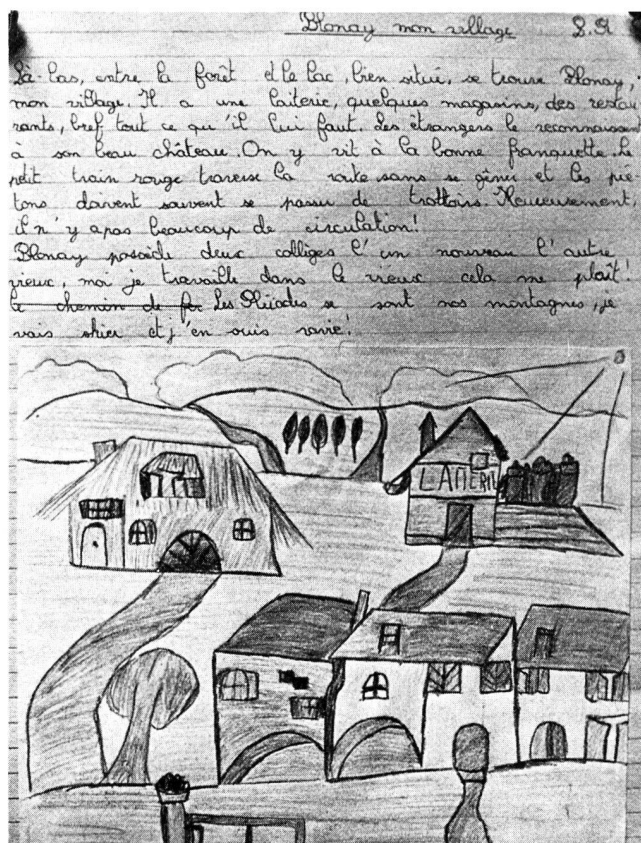 Blonay mon village S.R
Là-bas, entre la forêt et le lac, bien situé, se trouve Blonay,
mon village. Il a une laiterie, quelques magasins, des restau
rants, bref tout ce qu'il lui faut. Les étrangers le reconnaissent
à son beau château. On y vit à la bonne franquette. Le
petit train rouge traverse la route sans se gêner et les pié-
tons doivent souvent se passer de trottoirs. Heureusement,
il n'y a pas beaucoup de circulation!
Blonay possède deux collèges l'un nouveau l'autre
vieux, moi je travaille dans le vieux cela me plaît!
Le chemin de fer Les Pléiades se sont nos montagnes, je
vais skier et j'en suis ravie!
LAITERIE